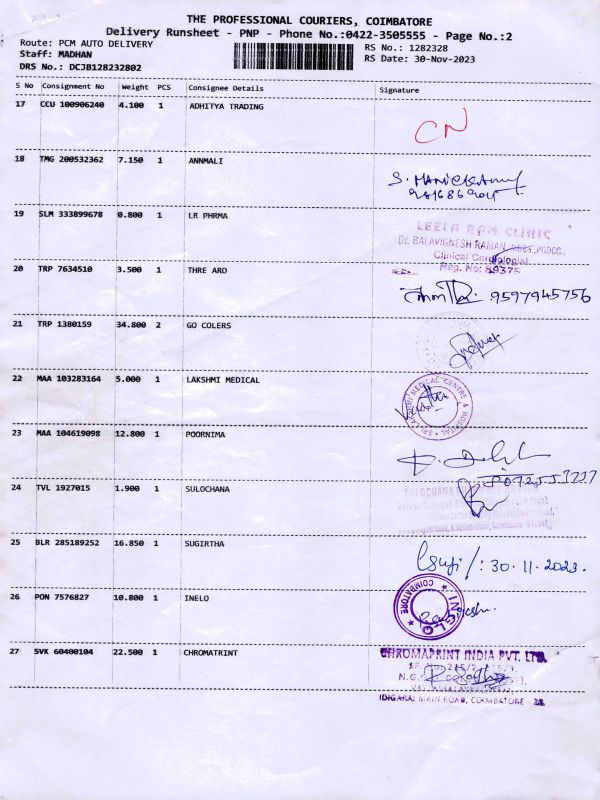 THE PROFESSIONAL COURIERS, COIMBATORE
Delivery Runsheet - PNP - Phone No.:0422-3505555 - Page No.:2
Route: PCM AUTO DELIVERY
RS No.: 1282328
Staff: MADHAN
RS Date: 30-Nov-2023
DRS No.: DCJB128232802
S No Consignment No Weight PCS Consignee Details Signature
17 CCU 100906240 4.100 1 ADHITYA TRADING
CN
18 TMG 200532362 7.150 1 ANNMALI
19 SLM 333899678 0.800 1 LR PHRMA
LEELA RAM CLINIC
Dr. BALAVIGNESH RAMAN, MBBS, PGDCC.,
Clinical Cardiologist
Reg. No: 89375
20 TRP 7634510 3.500 1 THRE ARO
9597945756
21 TRP 1380159 34.800 2 GO COLERS
22 MAA 103283164 5.000 1 LAKSHMI MEDICAL
SRI LAKSHMI MEDICAL CENTRE & HOSPITAL
23 MAA 104619098 12.800 1 POORNIMA
24 TVL 1927015 1.900 1 SULOCHANA
SULOCHANA
25 BLR 285189252 16.850 1 SUGIRTHA
Suji/: 30.11.2023.
26 PON 7576827 10.800 1 INELO
COIMBATORE
27 SVK 60400104 22.500 1 CHROMATRINT
CHROMAPRINT INDIA PVT. LTD.
IDIGARAI MAIN ROAD, COIMBATORE -